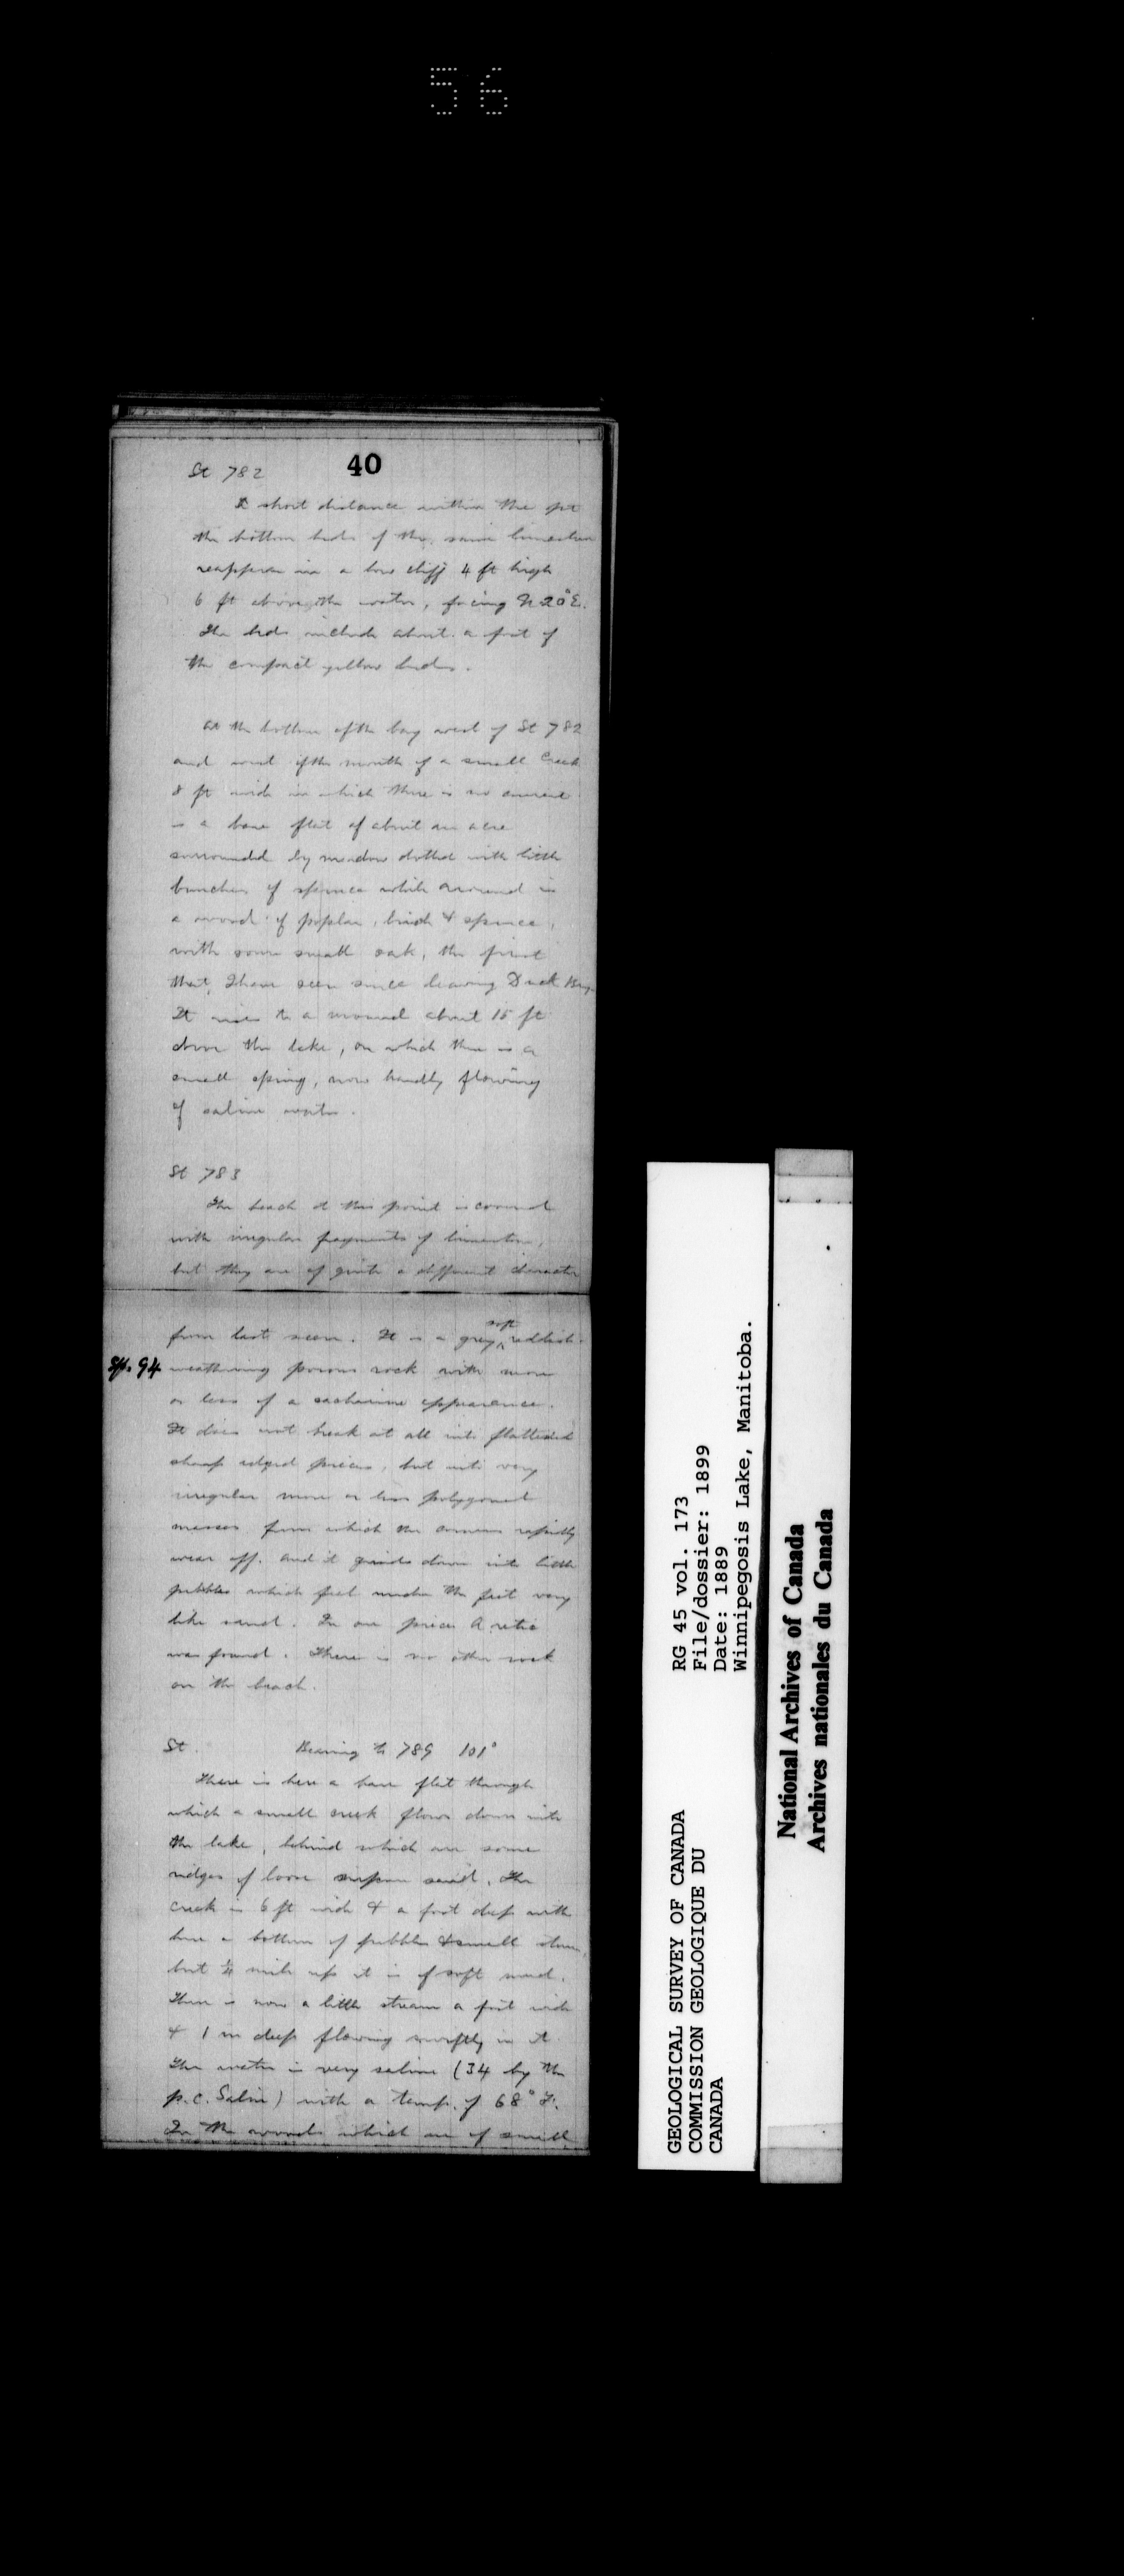 56
40
St 782
A short distance within the pt
the bottom beds of the same limestone
reappear in a low cliff 4 ft high
6 ft above the water, facing N20°E.
The beds include about a foot of
the compact yellow beds.
At the bottom of the bay west of St 782
and west of the mouth of a small Creek
8 ft wide in which there is no current
is a bare flat of about an acre
surrounded by meadow dotted with little
bunches of spruce while around is
a wood of poplar, birch & spruce,
with some small oak, the first
that I have seen since leaving Duck Bay.
It rises to a mound about 15 ft
above the lake, on which there is a
small spring, now hardly flowing
of saline water.
St 783
The beach at this point is covered
with irregular fragments of limestone,
but they are of quite a different character
from last seen. It is a grey soft reddish
Sp. 94 weathering porous rock with more
or less of a sacharine appearance.
It does not break at all into flattened
sharp edged pieces, but into very
irregular more or less polygonal
masses from which the corners rapidly
wear off. and it grinds down into little
pebbles which feel under the feet very
like sand. In one piece A. retic
was found. There is no other rock
on the beach.
St. Bearing to 789 101°
There is here a bare flat through
which a small creek flows down into
the lake, behind which are some
ridges of loose sand. The
creek is 6 ft wide & a foot deep with
here a bottom of pebbles & small stones,
but ¼ mile up it is of soft mud.
There is now a little stream a foot wide
& 1 in deep flowing swiftly in it
The water is very saline (34 by the
p.c. Salin) with a temp. of 68° F.
In the woods which are of small
GEOLOGICAL SURVEY OF CANADA
COMMISSION GEOLOGIQUE DU
CANADA
RG 45 vol. 173
File/dossier: 1899
Date: 1889
Winnipegosis Lake, Manitoba.
National Archives of Canada
Archives nationales du Canada